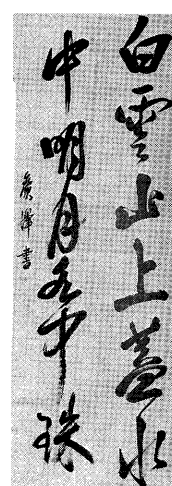 白雲山上蓋水
中明月中珠
書